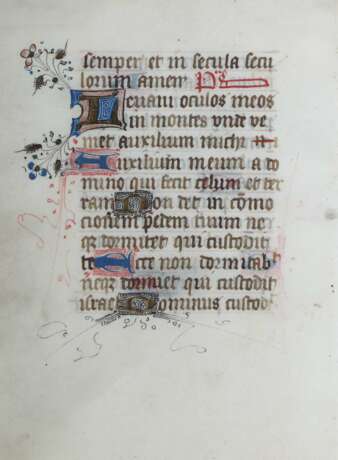 semper et in secula secu
lorum amen Ps
Levavi oculos meos
in montes unde ve
niet auxilium michi
Auxilium meum a do
mino qui fecit celum et ter
ram Non det in como
cionem pedem tuum ne
qz dormitet qui custodit
te Ecce non dormitab
neqz dormiet qui custodit
israel Dominus custod